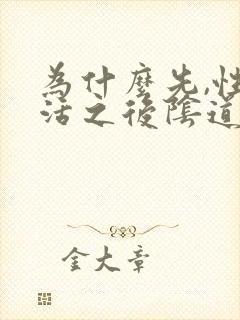 為什麼先,性
活之後陰道
金大章